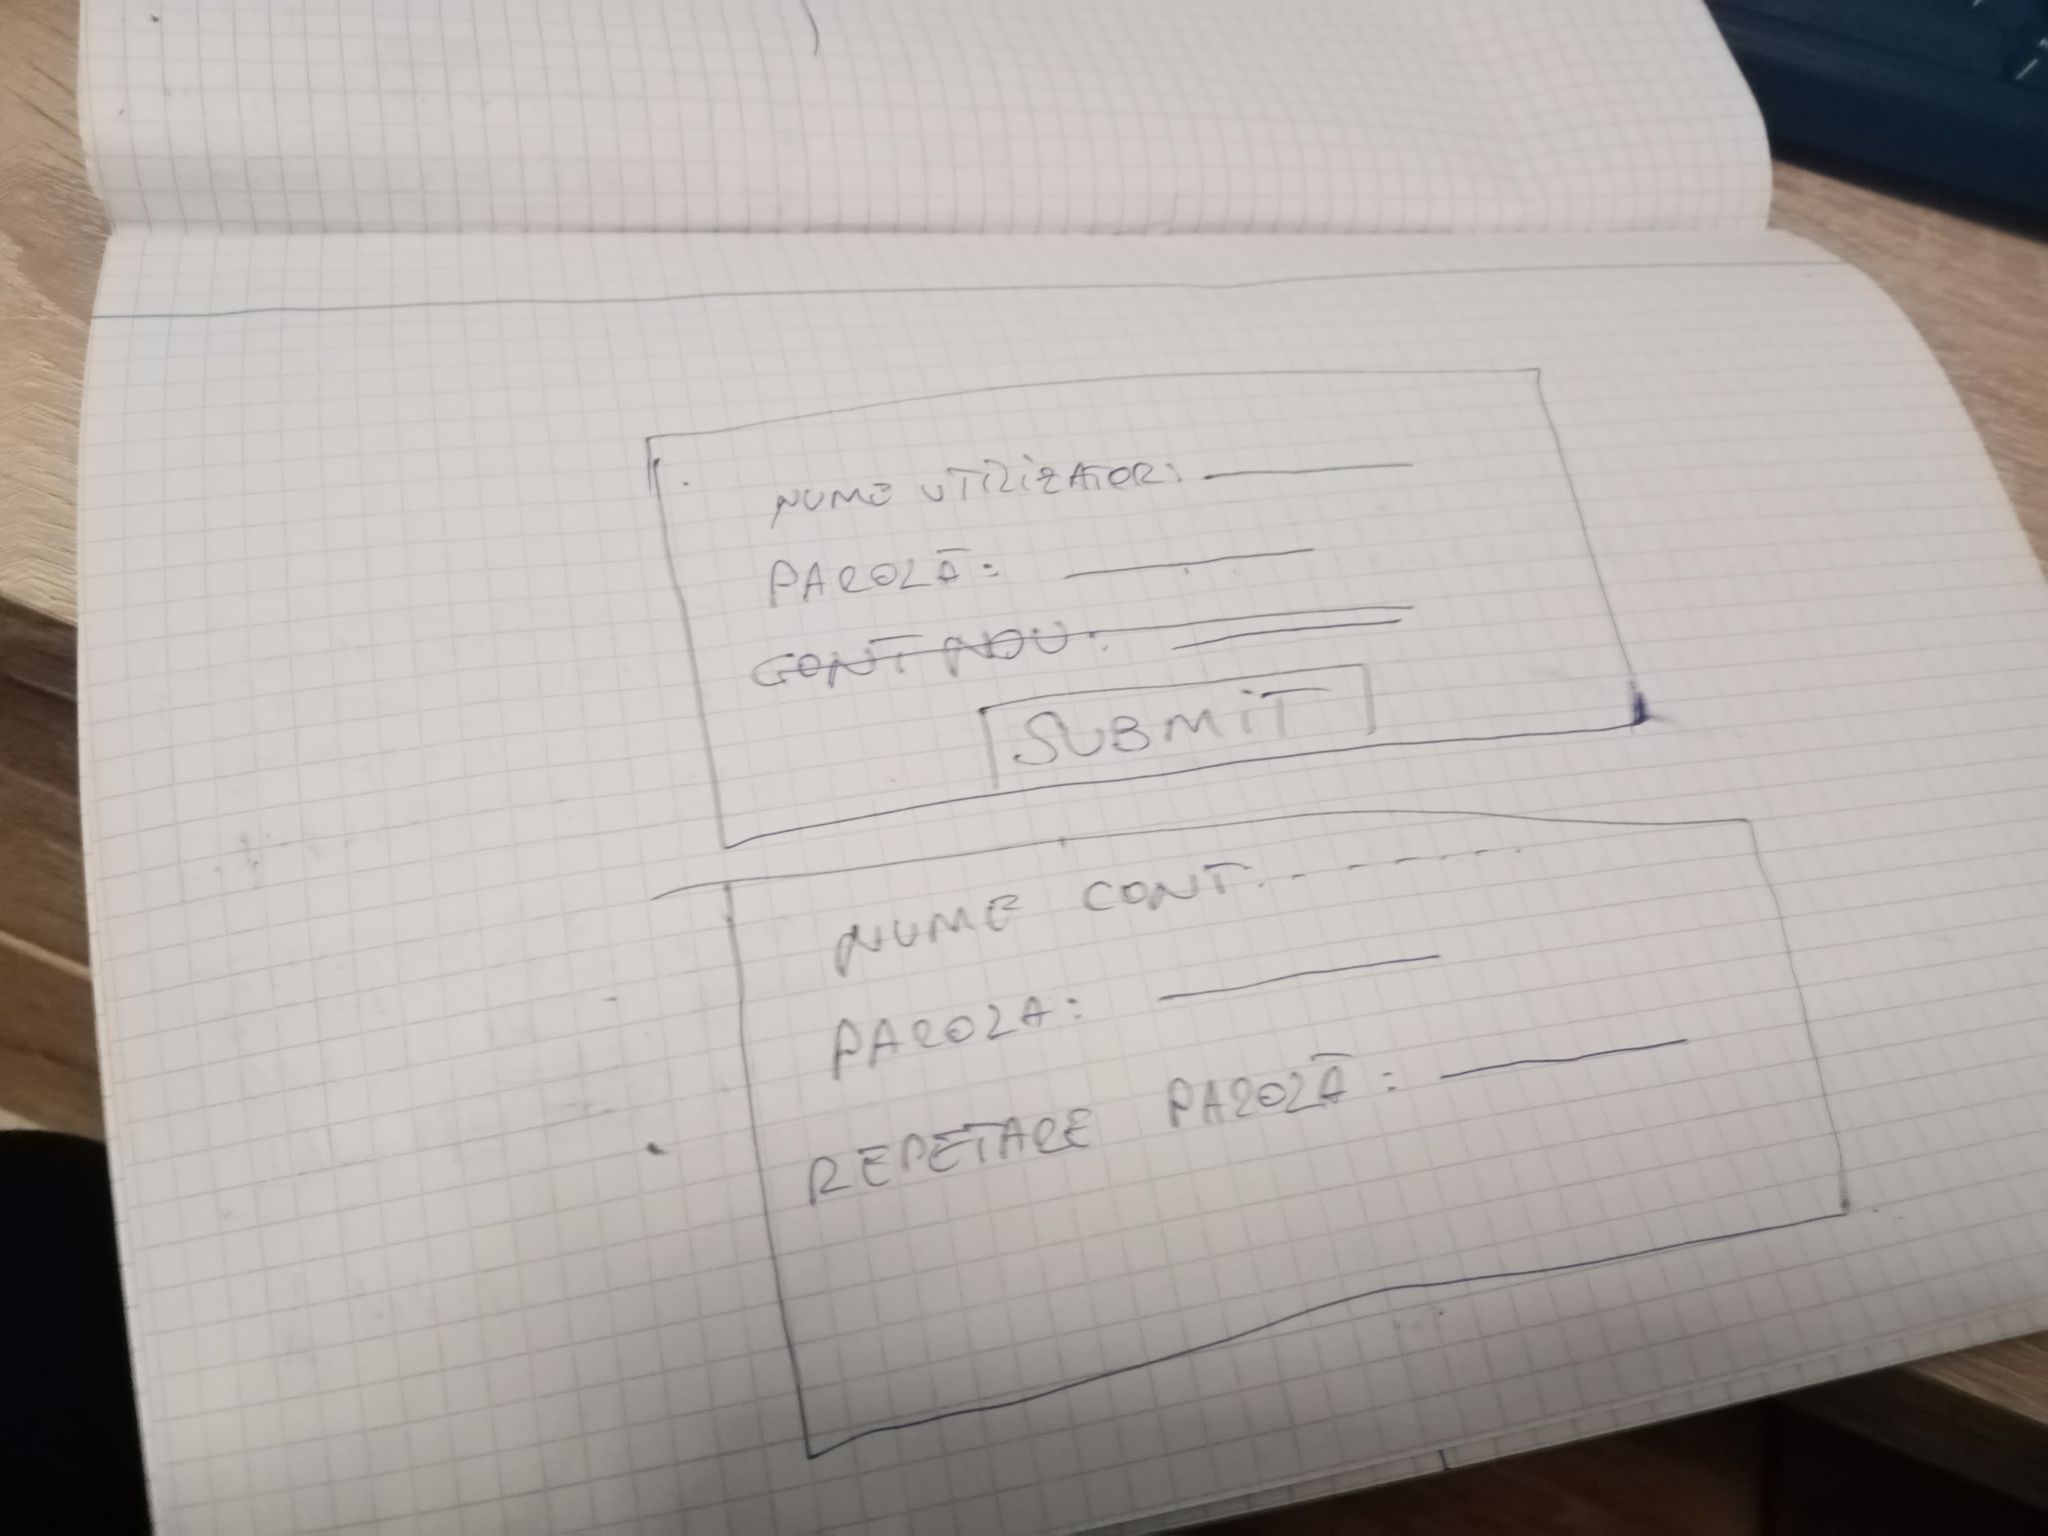 NUME UTILIZATOR:
PAROLĂ:
CONT NOU:
SUBMIT
NUME CONT.
PAROLA:
REPETARE PAROLĂ: